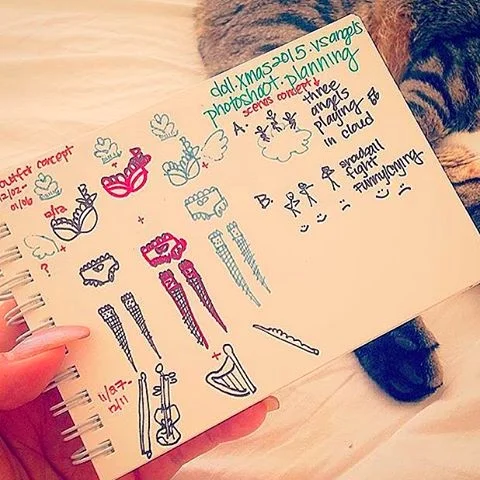 doll.xmas2015.vsangels
photoshoot.planning
scenes concept↓
A. three
angels
playing
in cloud
B. snowball
fight
funny/crying
outfit concept
12/02-
01/06
?
11/27-
12/11